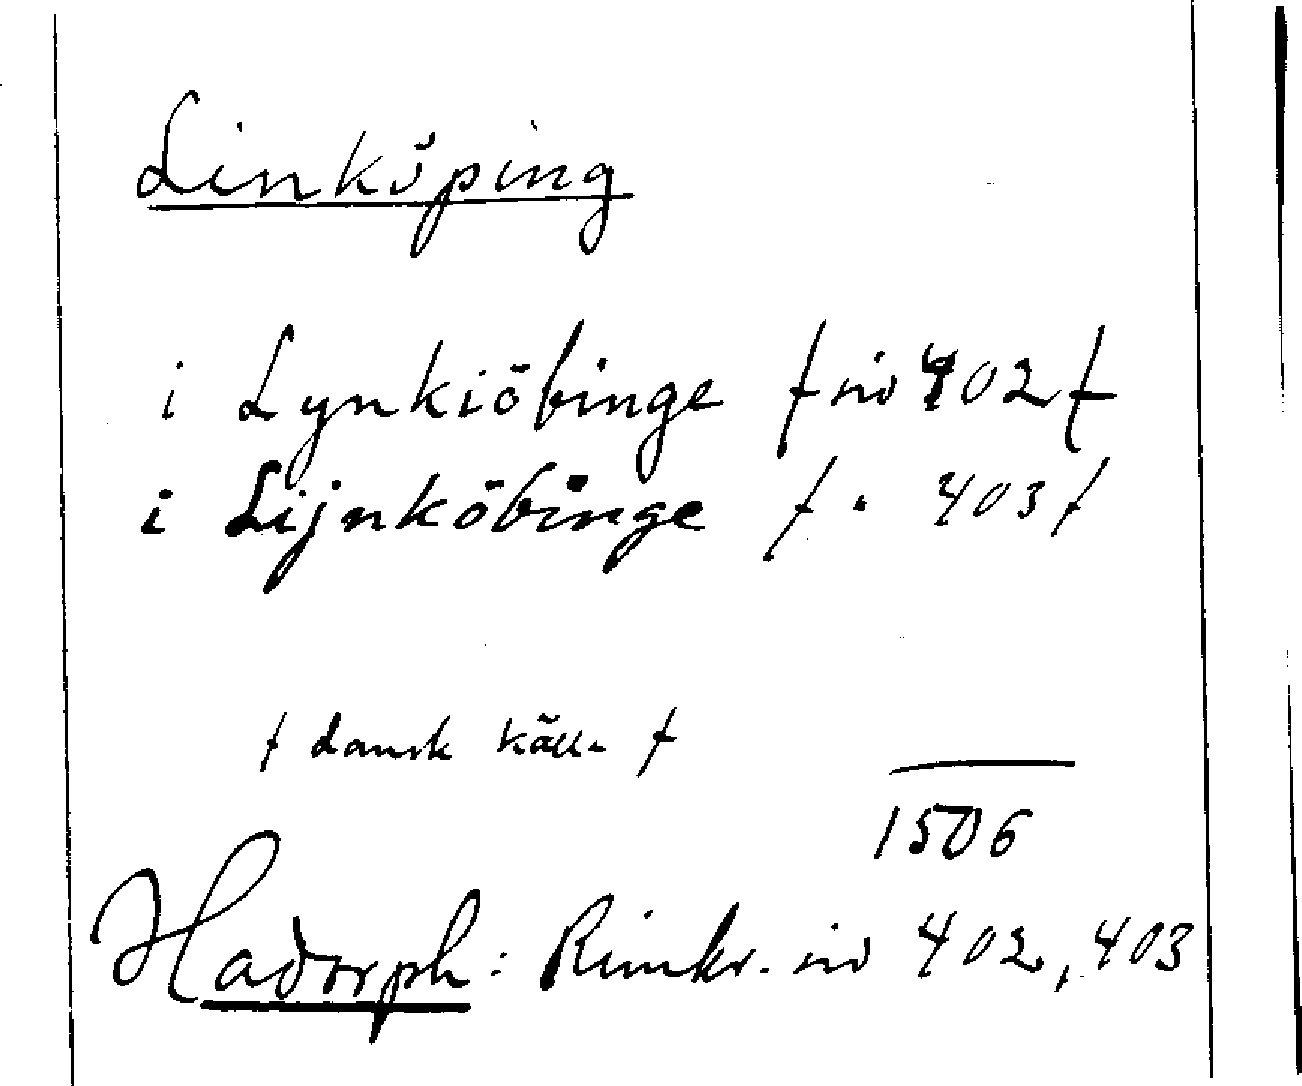 Linköping
i Lynkiöbinge / sid 402 /
i Lijnköbinge / " 403 /
/ dansk källa /
1506
Hadorph: Rimkr. sid 402, 403